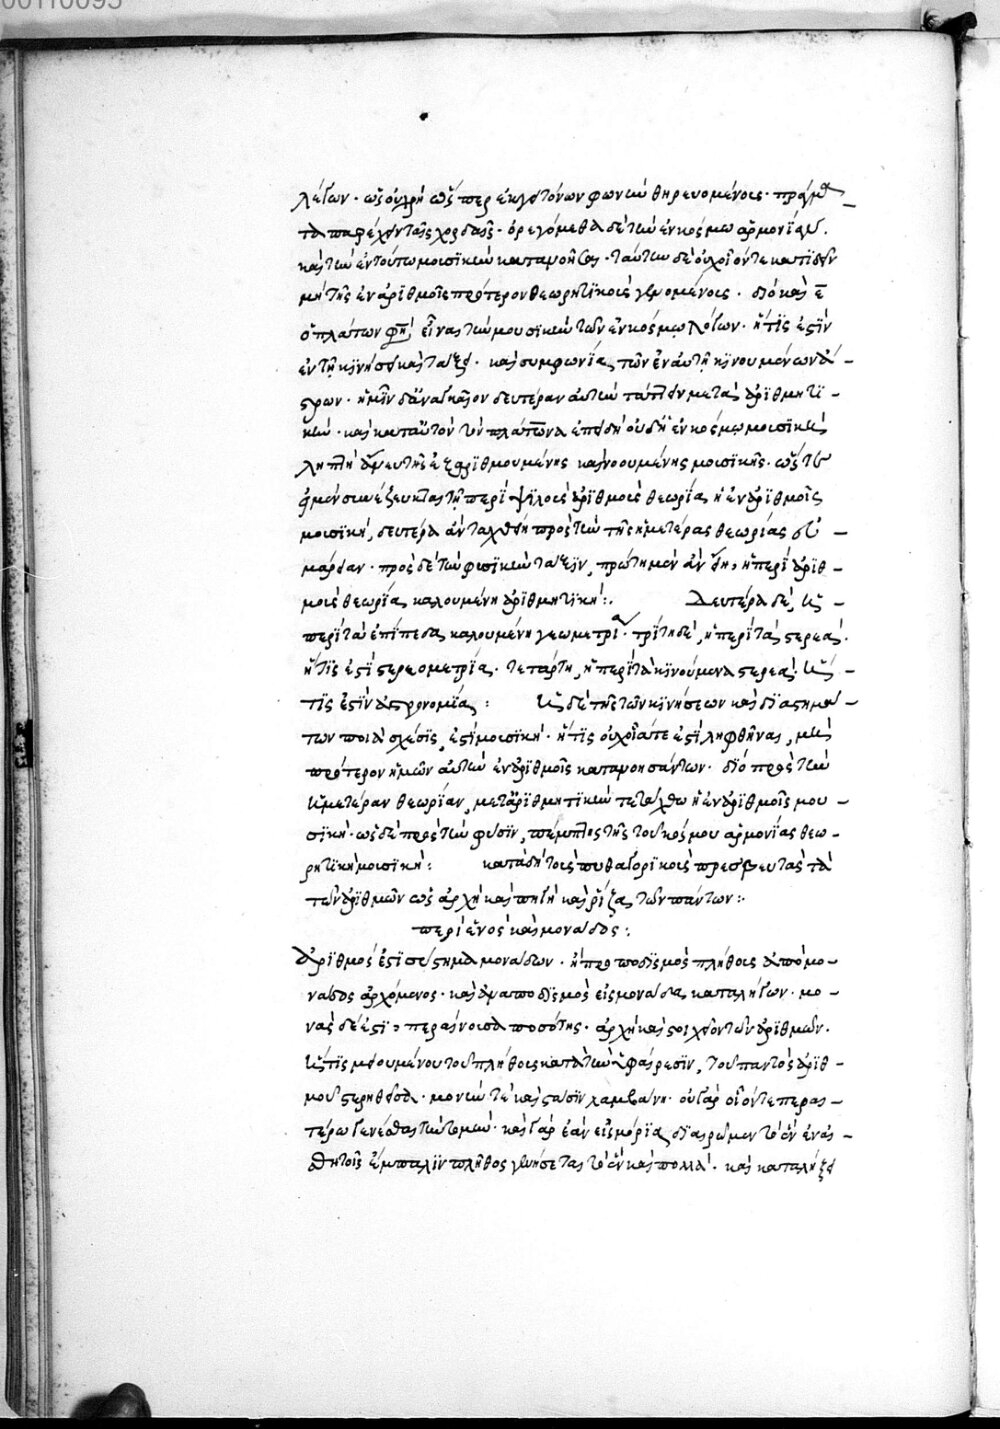 λέγων. ὡς οὐ χρὴ ὥσπερ ἐκ γειτόνων φωνὴν θηρευομένοις. πράγματα
τα παρέχειν ταῖς χορδαῖς. ὀρεγόμεθα δὲ τὴν ἐν κόσμω ἁρμονίαν.
καὶ τὴν ἐν τούτω μουσικὴν κατανοῆσαι. ταύτην δὲ οὐχ οἷόν τε κατιδεῖν
μὴ τῆς ἐν ἀριθμοῖς πρότερον θεωρητικοὺς γενομένους. διὸ καὶ ε
ὁ πλάτων φησὶ εἶναι τὴν μουσικὴν τῶν ἐν κόσμω λόγων. ἥτις ἐστὶν
ἐν τῆ κινήσει καὶ τάξει. καὶ συμφωνία τῶν ἐν αὐτῆ κινουμένων ἀ-
στρων. ἡμῖν δ' ἀναγκαῖον δευτέραν αὐτὴν τάττειν μετὰ ἀριθμητι-
κὴν. καὶ κατ' αὐτὸν τὸν πλάτωνα ἐπειδὴ οὐδὲ ἡ ἐν κόσμω μουσικὴ
ληπτὴ ἄνευ τῆς ἐξαριθμουμένης καὶ νοουμένης μουσικῆς. ὥστε
εἰ μὲν συνέζευκται τῆ περὶ ψιλοὺς ἀριθμοὺς θεωρία ἡ ἐν ἀριθμοῖς
μουσικὴ, δευτέρα ἂν ταχθείη πρὸς τὴν τῆς ἡμετέρας θεωρίας εὐ-
μάρειαν. πρὸς δὲ τὴν φυσικὴν τάξιν, πρώτη μὲν ἂν εἴη, ἡ περὶ ἀριθ-
μοὺς θεωρία καλουμένη ἀριθμητική:. Δευτέρα δὲ, ἡ -
περὶ τὰ ἐπίπεδα καλουμένη γεωμετρία. τρίτη δὲ, ἡ περὶ τὰ στερεά.
ἥτις ἐστὶ στερεομετρία. τετάρτη, ἡ περὶ τὰ κινούμενα στερεά. ἥ-
τις ἐστὶν ἀστρονομία: ἡ δὲ τῆς τῶν κινήσεων καὶ διαστημά-
των ποιὰ σχέσις, ἐστὶ μουσική. ἥτις οὐχ οἵα τε ἐστὶ ληφθῆναι, μὴ
πρότερον ἡμῶν αὐτὴν ἐν ἀριθμοῖς κατανοησάντων. διὸ πρὸς τὴν
ἡμετέραν θεωρίαν, μετ' ἀριθμητικὴν τετάχθω ἡ ἐν ἀριθμοῖς μου-
σική. ὡς δὲ πρὸς τὴν φύσιν, πέμπτος τῆς τοῦ κόσμου ἁρμονίας θεω-
ρητικὴ μουσική: κατὰ δὴ τοὺς πυθαγορικοὺς πρεσβευτέα τὰ
τῶν ἀριθμῶν ὡς ἀρχὴ καὶ πηγὴ καὶ ῥίζα τῶν πάντων:
περὶ ἑνὸς καὶ μονάδος:
Ἀριθμός ἐστι σύστημα μονάδων. ἢ προποδισμὸς πλήθους ἀπὸ μο-
νάδος ἀρχόμενος. καὶ ἀναποδισμὸς εἰς μονάδα καταλήγων. μο-
νὰς δέ ἐστι, περαίνουσα ποσότης. ἀρχὴ καὶ στοιχεῖον τῶν ἀριθμῶν.
ἥτις μειουμένου τοῦ πλήθους κατὰ τὴν ὑφαίρεσιν, τοῦ παντὸς ἀριθ-
μοῦ στερηθεῖσα. μονήν τε καὶ στάσιν λαμβάνει. οὐ γὰρ οἷόν τε περαι-
τέρω γενέσθαι τὴν τομὴν. καὶ γὰρ ἐὰν εἰς μόρια διαιρῶμεν τὸ ἓν ἐν αἰσ-
θητοῖς ἔμπαλιν πλῆθος γενήσεται τὸ ἓν καὶ πολλά. καὶ καταλήξει